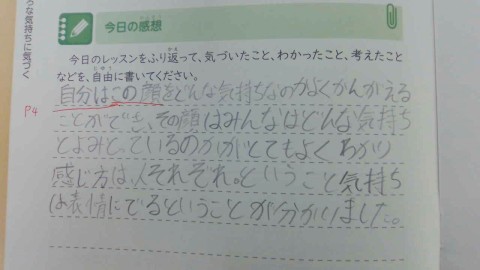 ろな気持ちに気づく
今日の感想
今日のレッスンをふり返って、気づいたこと、わかったこと、考えたこと
などを、自由に書いてください。
自分はこの顔をどんな気持ちなのかよくかんがえる
P4
ことができ、その顔はみんなはどんな気持ち
とよみとっているのかがとてもよくわかり
感じ方は、人それぞれ。ということと気持ち
は表情にでるということが分かりました。